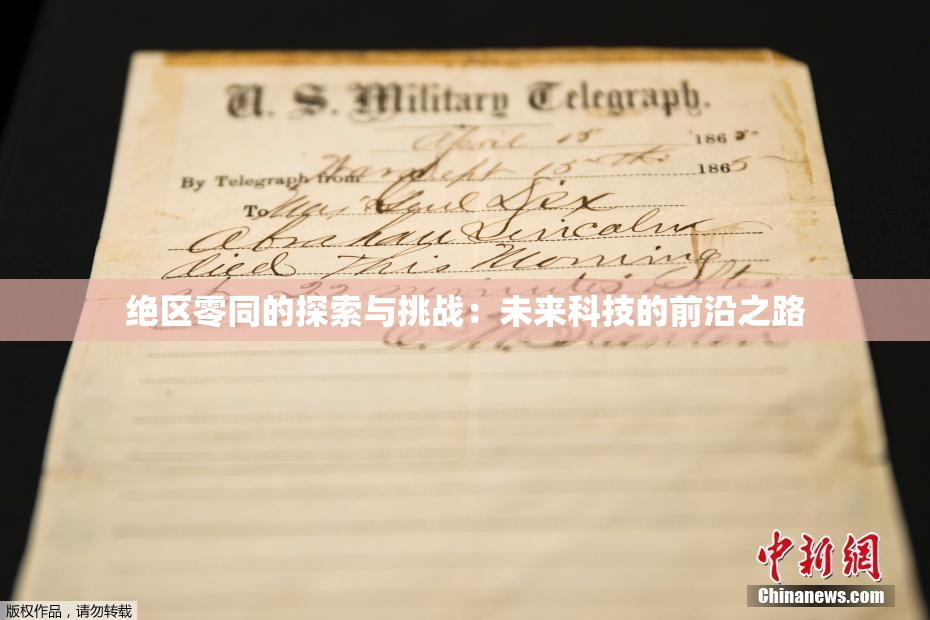 U. S. Military Telegraph.
April 15 1865
By Telegraph from War Dept 15th 1865
To Maj Genl Dix
Abraham Lincoln
died This Morning
at 22 minutes after
绝区零同的探索与挑战：未来科技的前沿之路
中新网
Chinanews.com
版权作品，请勿转载